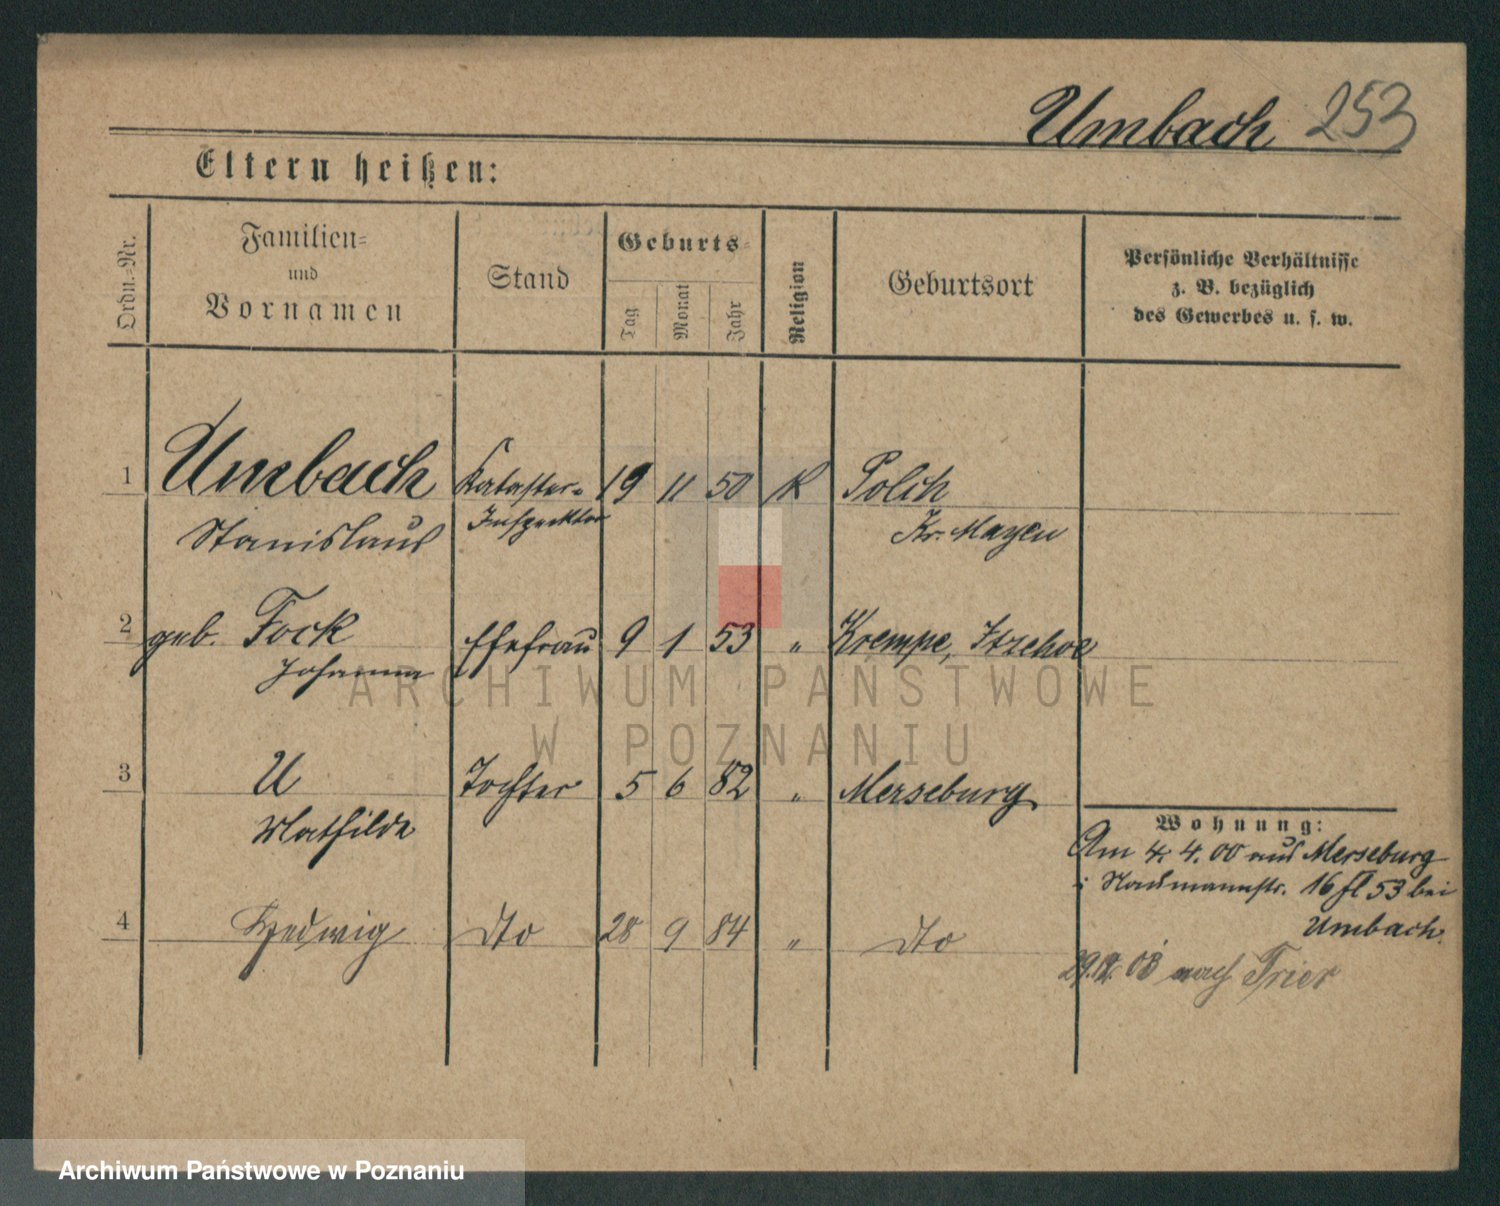 Umbach 253
Eltern heißen:
Ordn.-Nr.
Familien- und Vornamen
Stand
Geburts-
Tag Monat Jahr
Religion
Geburtsort
Persönliche Verhältnisse
z. B. bezüglich
des Gewerbes u. s. w.
1 Umbach Kataster- 19 11 50 K Polch
Stanislaus Inspektor Kr. Mayen
2 geb. Fock Ehefrau 9 1 53 " Krempe, Itzehoe
Johanna
3 U Tochter 5 6 82 " Merseburg
Mathilde
Wohnung:
Am 4. 4. 00 aus Merseburg
Naumannstr. 16 fl 53 bei
Umbach.
4 Hedwig dto 28 9 84 " dto
29.12. 03 nach Trier
ARCHIWUM PAŃSTWOWE
W POZNANIU
Archiwum Państwowe w Poznaniu